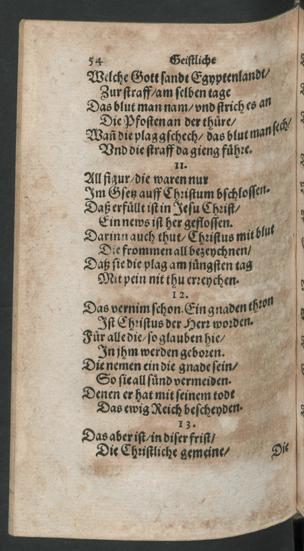 54 Geistliche
Welche Gott sandt Egyptenland/
Zur straff/am selben tage
Das blut man nam/vnd strich es an
Die Pfosten an der thüre/
Wañ die plag gschech/das blut man sech/
Vnd die straff da gieng führe.
11.
All figur/die waren nur
Im Gsetz auff Christum bschlossen.
Daß erfüllt ist in Jesu Christ/
Ein news ist her geflossen.
Darinn auch thut/Christus mit blut
Die frommen all bezeychnen/
Daß sie die plag am jüngsten tag
Mit pein nit thu erreychen.
12.
Das vernim schon. Ein gnaden thron
Ist Christus der Herr worden.
Für alle die/so glauben hie/
In jhm werden geboren.
Die nemen ein die gnade sein/
So sie all sünd vermeiden.
Denen er hat mit seinem todt
Das ewig Reich bescheyden.
13.
Das aber ist/in diser frist/
Die Christliche gemeine/
Die